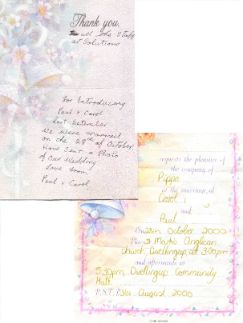 Thank you,
to all the Staff
at Solutions
For Introducing
Paul & Carol
last September
We were married
on the 28th of October
Have Sent a Photo
of Our Wedding
Love from
Paul & Carol
requests the pleasure of
the company of
Pippa
at the marriage of
Carol
and
Paul
October 2000
St Mark's Anglican
Church Dwellingup at 3.00pm
and afterwards at
5.30pm Dwellingup Community
Hall
R.S.V.P. August 2000